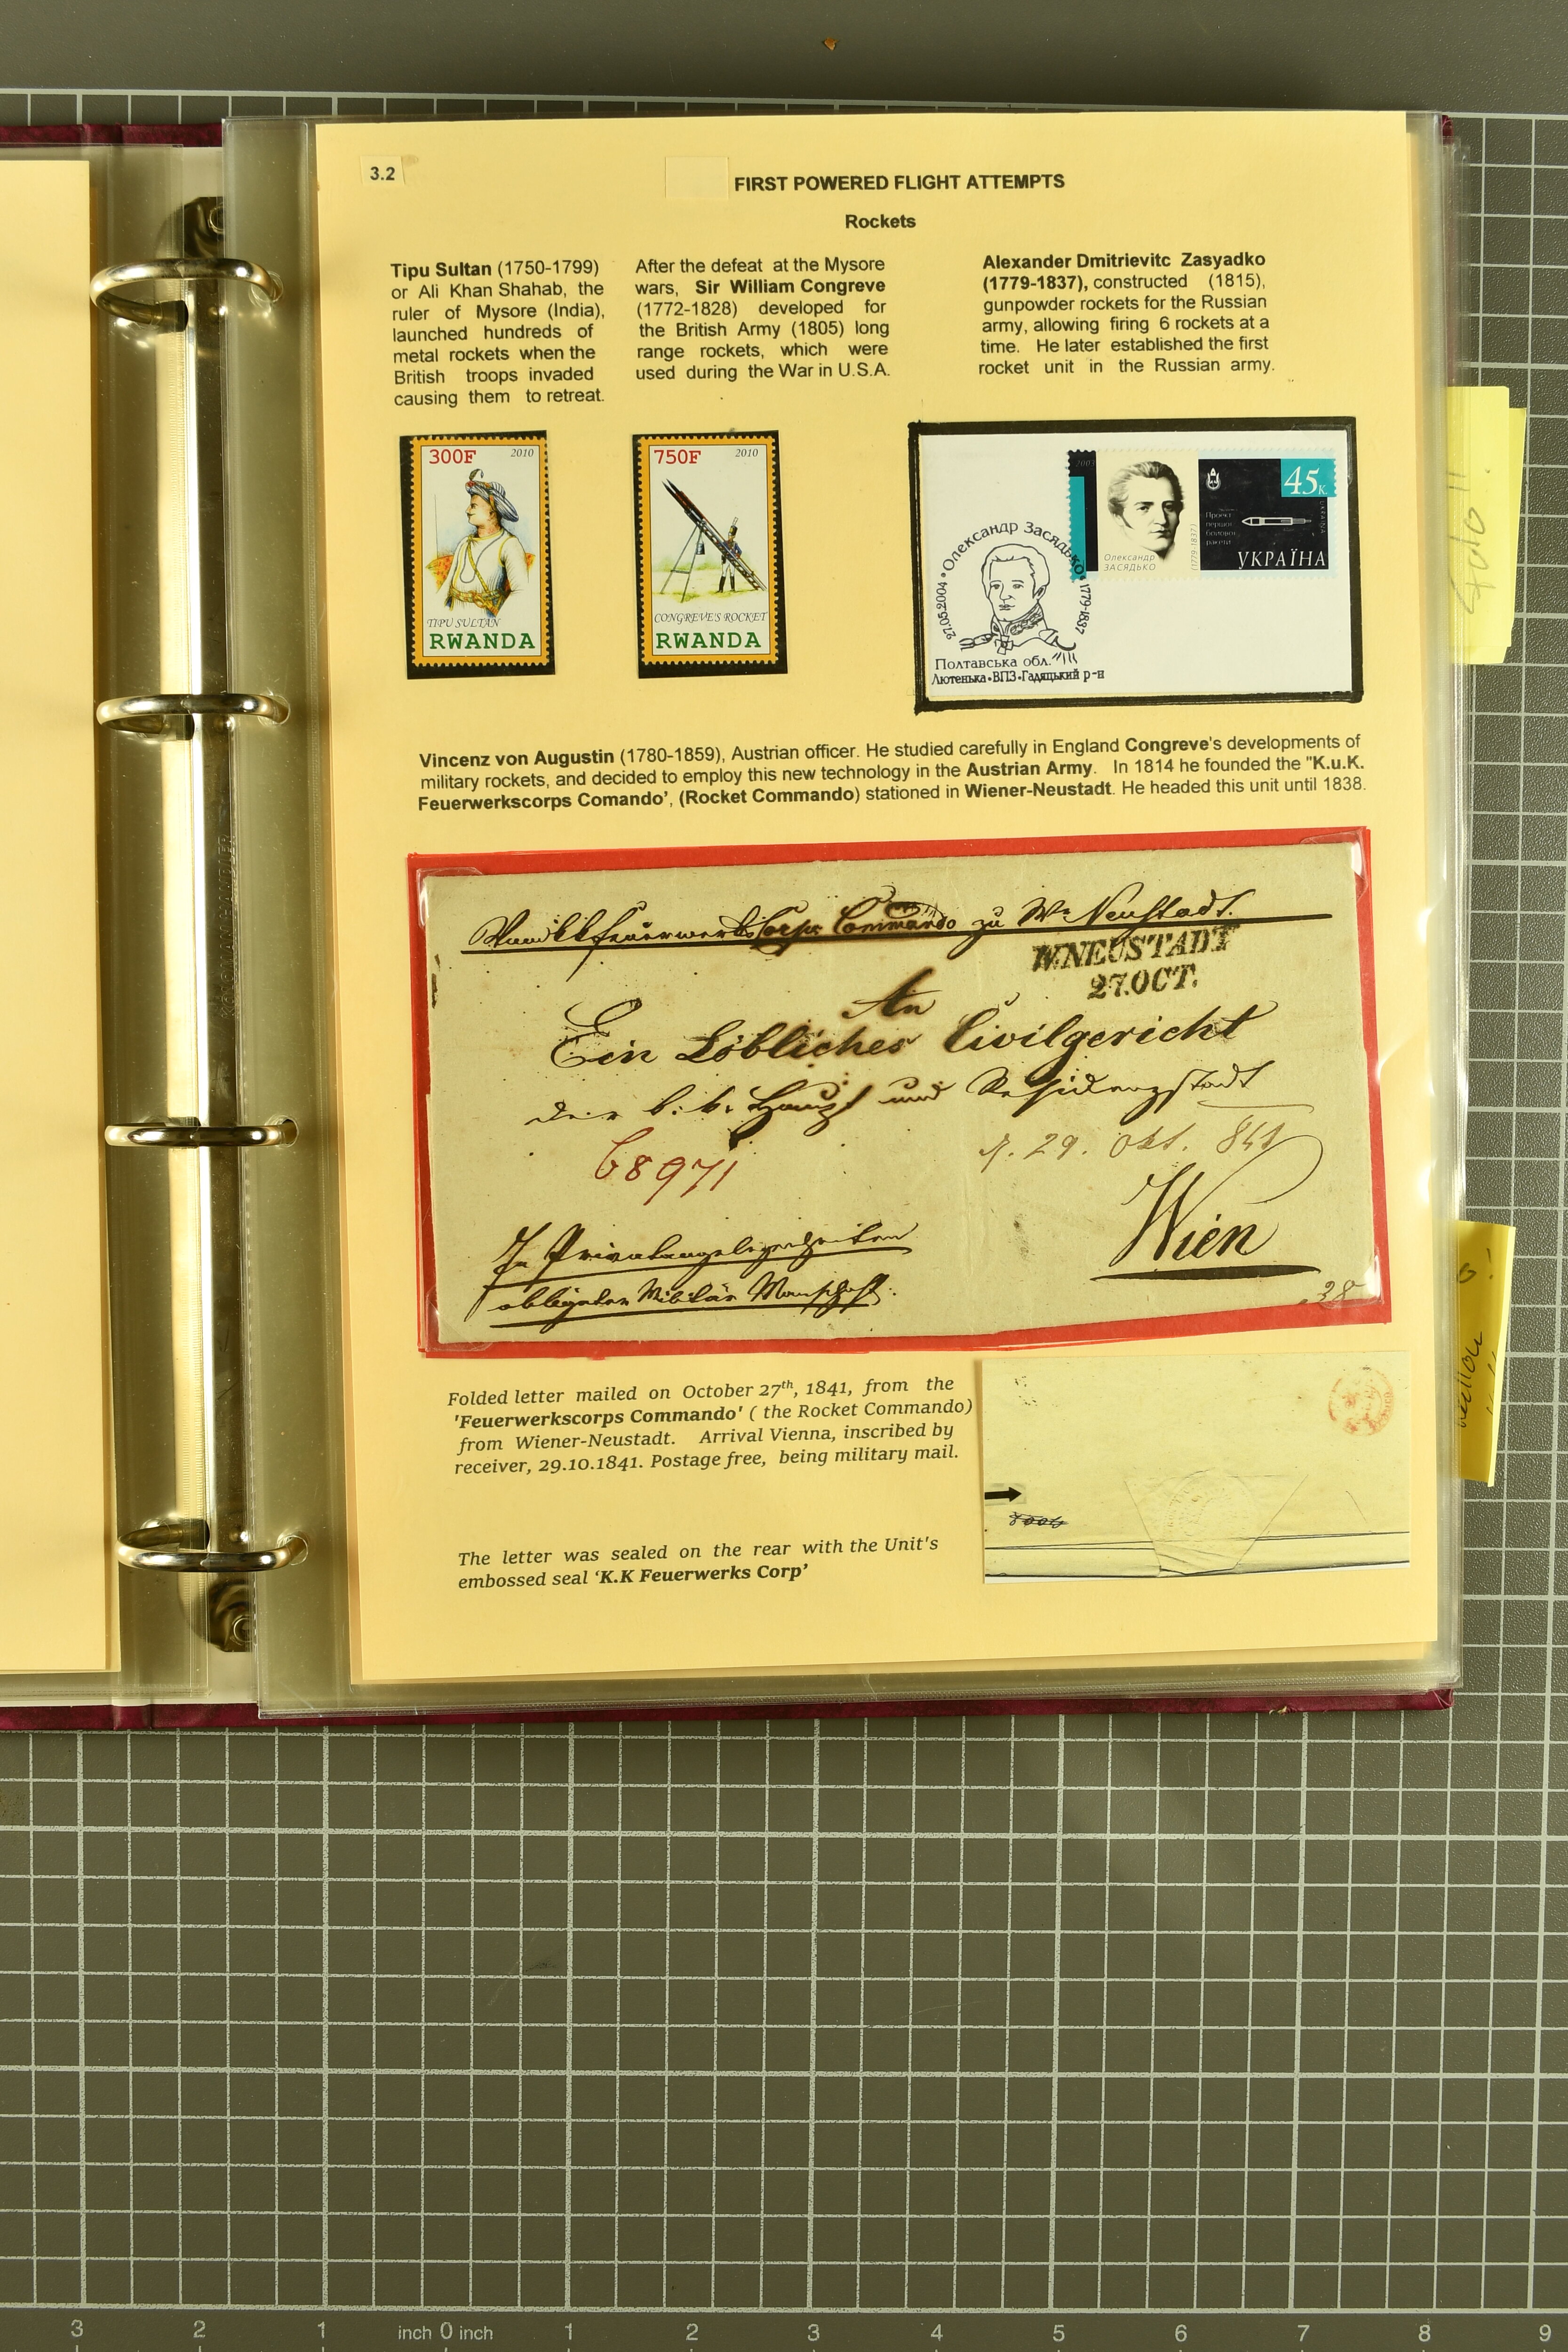 3.2
FIRST POWERED FLIGHT ATTEMPTS
Rockets
Tipu Sultan (1750-1799)
or Ali Khan Shahab, the
ruler of Mysore (India),
launched hundreds of
metal rockets when the
British troops invaded
causing them to retreat.
After the defeat at the Mysore
wars, Sir William Congreve
(1772-1828) developed for
the British Army (1805) long
range rockets, which were
used during the War in U.S.A.
Alexander Dmitrievitc Zasyadko
(1779-1837), constructed (1815),
gunpowder rockets for the Russian
army, allowing firing 6 rockets at a
time. He later established the first
rocket unit in the Russian army.
300F 2010
TIPU SULTAN
RWANDA
750F 2010
CONGREVE'S ROCKET
RWANDA
2003
45к.
Проект
першої
бойової
ракети
UKRAINA
УКРАЇНА
Олександр
ЗАСЯДЬКО
(1779-1837)
27.05.2004 • Олександр Засядько • 1779-1837
Полтавська обл.
Лютенька•ВПЗ•Гадяцький р-н
Vincenz von Augustin (1780-1859), Austrian officer. He studied carefully in England Congreve's developments of
military rockets, and decided to employ this new technology in the Austrian Army. In 1814 he founded the "K.u.K.
Feuerwerkscorps Comando', (Rocket Commando) stationed in Wiener-Neustadt. He headed this unit until 1838.
Feuerwerks Corps Commando zu Wr Neustadt.
W.NEUSTADT
27.OCT.
An
Ein Löbliches Civilgericht
der k: k: Haupt und Residenzstadt
68971
29. Okt. 841
Wien
In Privatangelegenheiten
obligater Militär Manschaft.
38
Folded letter mailed on October 27th, 1841, from the
'Feuerwerkscorps Commando' ( the Rocket Commando)
from Wiener-Neustadt. Arrival Vienna, inscribed by
receiver, 29.10.1841. Postage free, being military mail.
The letter was sealed on the rear with the Unit's
embossed seal 'K.K Feuerwerks Corp'
Gold !!
3 2 1 inch 0 inch 1 2 3 4 5 6 7 8 9